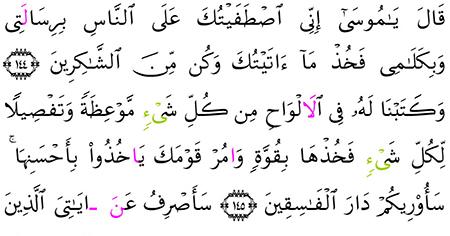 قَالَ يَٰمُوسَىٰٓ إِنِّى ٱصْطَفَيْتُكَ عَلَى ٱلنَّاسِ بِرِسَٰلَتِى
وَبِكَلَٰمِى فَخُذْ مَآ ءَاتَيْتُكَ وَكُن مِّنَ ٱلشَّٰكِرِينَ ١٤٤
وَكَتَبْنَا لَهُۥ فِى ٱلَالْوَاحِ مِن كُلِّ شَىْءٍ مَّوْعِظَةً وَتَفْصِيلًا
لِّكُلِّ شَىْءٍ فَخُذْهَا بِقُوَّةٍ وَامُرْ قَوْمَكَ يَاخُذُوا۟ بِأَحْسَنِهَا ۚ
سَأُو۟رِيكُمْ دَارَ ٱلْفَٰسِقِينَ ١٤٥ سَأَصْرِفُ عَنَ ـايَٰتِىَ ٱلَّذِينَ